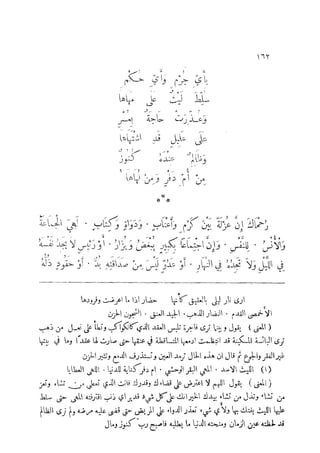 ١٦٣
بِأَيِّ جُرْمٍ وَأَيِّ حُكْمٍ
سُلِّطَ لَيْثٌ عَلَى مَهَاهَا
وَعُذِّرَتْ حَاجَةٌ بِعُسْرٍ
عَلَى عَلِيلٍ قَدِ اشْتَهَاهَا
وَظَالِمٌ عِنْدَهُ كُنُوزٌ
مِنْ أُمِّ دَفْرٍ وَمِنْ لُهَاهَا
رُحْمَاكَ إِنَّ عُزْلَةً بَيْنَ كَرْمٍ وَأَعْنَابٍ ، وَدَوَاةٍ وَكِتَابٍ ، لَهِيَ الْجَمَاعَةُ
وَالْأُنْسُ ، لِلنَّفْسِ ، وَإِنَّ اجْتِمَاعًا بِكَبِيرٍ يُبْغَضُ وَيُزَارُ ، أَوْ رَئِيسٍ لَا يَجِدُ نَفْسَهُ
فِي اللَّيْلِ وَلَا تَجِدُهُ فِي النَّهَارِ ، أَوْ عَدُوٍّ لَيْسَ مِنْ صَدَاقَتِهِ بُدٌّ ، أَوْ حَقُودٍ ذُلُّهُ
ارى نار ليلى بالعقيق كأنها حضار اذا ما اعرضت وفرودها
الأخمص القدم . النضار الذهب . الجيد العنق . الشجون الحزن
( المعنى ) يقول وبينا ترى فاجرة تلبس العقد الذي كانكواكب وتطأ على نعل من ذهب
ترى البائسة المسكينة قد انتظمت ادمعها المتساقطة في عنقها حتى صارت لها عقداً وما في بيتها
غير الفقر والجوع ثم قال ان هذه الحال ترمد العين وتستذرف الدمع وتثير الحزن
(١) الليث الاسد . المهى البقر الوحشي . ام دفر كناية للدنيا . اللهى العطايا
( المعنى ) يقول اللهم لا اعتراض على قضاءك وقدرك فانت الذي تعطي من تشاء وتعز
من تشاء وتذل من تشاء بيدك الخير انك على كل شيء قدير اي ذنب اقترفته المهى حتى سلط
عليها الليث يفتك بها ولأي شيء تعذر الدواء على المريض حتى قضى عليه مرضه ولم نرى الظالم
قد لحظته عين الزمان ومنحته الدنيا ما يطلبه فاصبح رب كنوز ومال